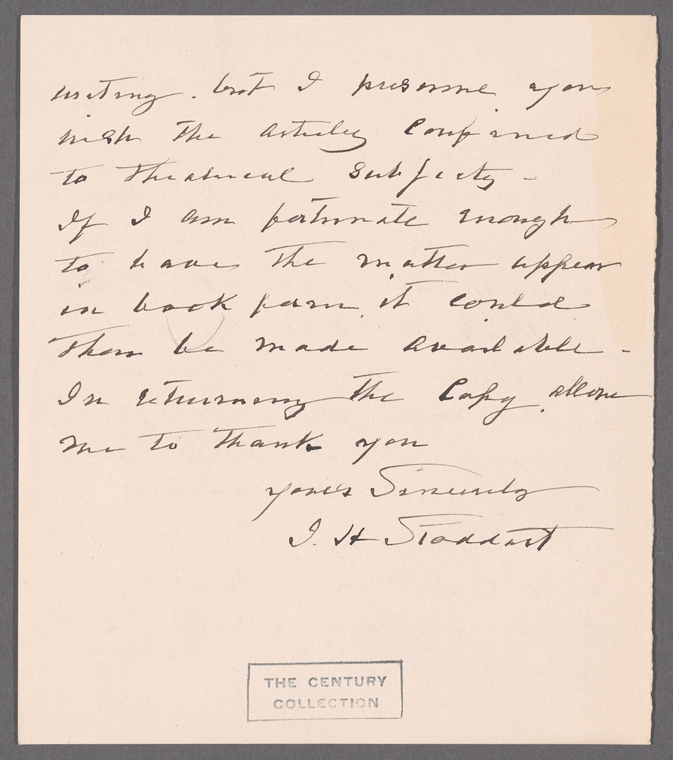 writing. but I presume you
wish the articles confined
to theatrical subjects -
If I am fortunate enough
to have the matter appear
in book form, it could
then be made available -
In returning the Copy, allow
me to thank you
yours Sincerely
J. H Stoddart
THE CENTURY
COLLECTION